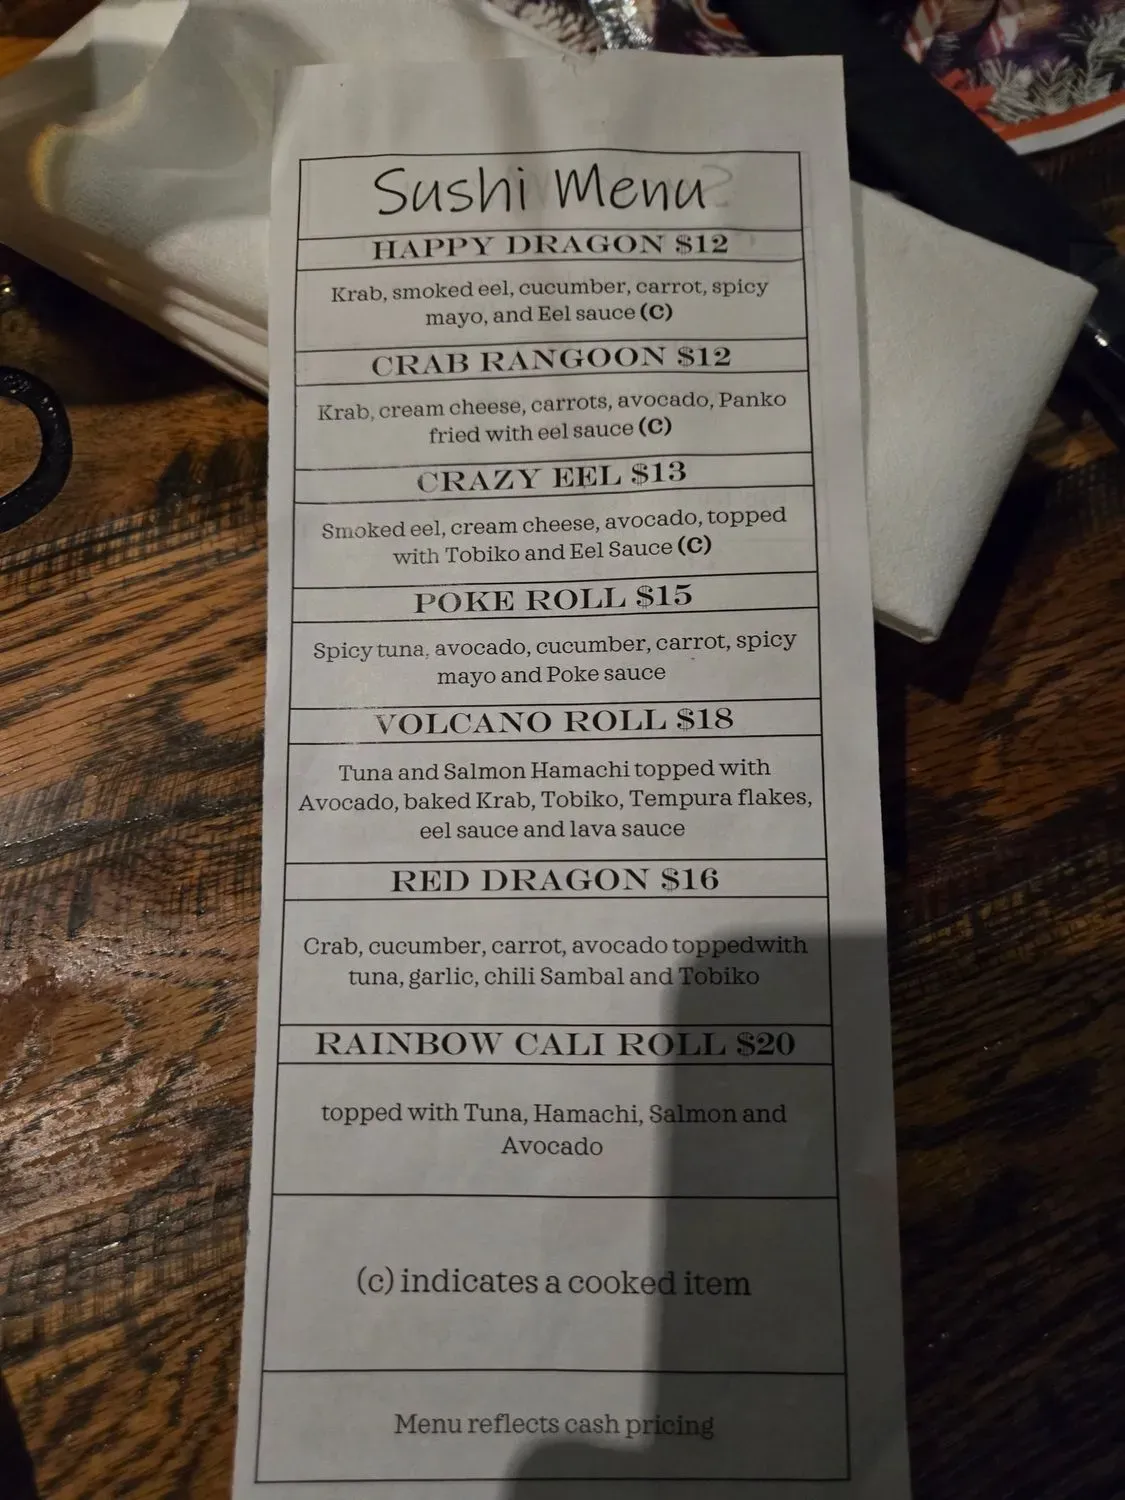 Sushi Menu
HAPPY DRAGON $12
Krab, smoked eel, cucumber, carrot, spicy
mayo, and Eel sauce (C)
CRAB RANGOON $12
Krab, cream cheese, carrots, avocado, Panko
fried with eel sauce (C)
CRAZY EEL $13
Smoked eel, cream cheese, avocado, topped
with Tobiko and Eel Sauce (C)
POKE ROLL $15
Spicy tuna, avocado, cucumber, carrot, spicy
mayo and Poke sauce
VOLCANO ROLL $18
Tuna and Salmon Hamachi topped with
Avocado, baked Krab, Tobiko, Tempura flakes,
eel sauce and lava sauce
RED DRAGON $16
Crab, cucumber, carrot, avocado toppedwith
tuna, garlic, chili Sambal and Tobiko
RAINBOW CALI ROLL $20
topped with Tuna, Hamachi, Salmon and
Avocado
(c) indicates a cooked item
Menu reflects cash pricing